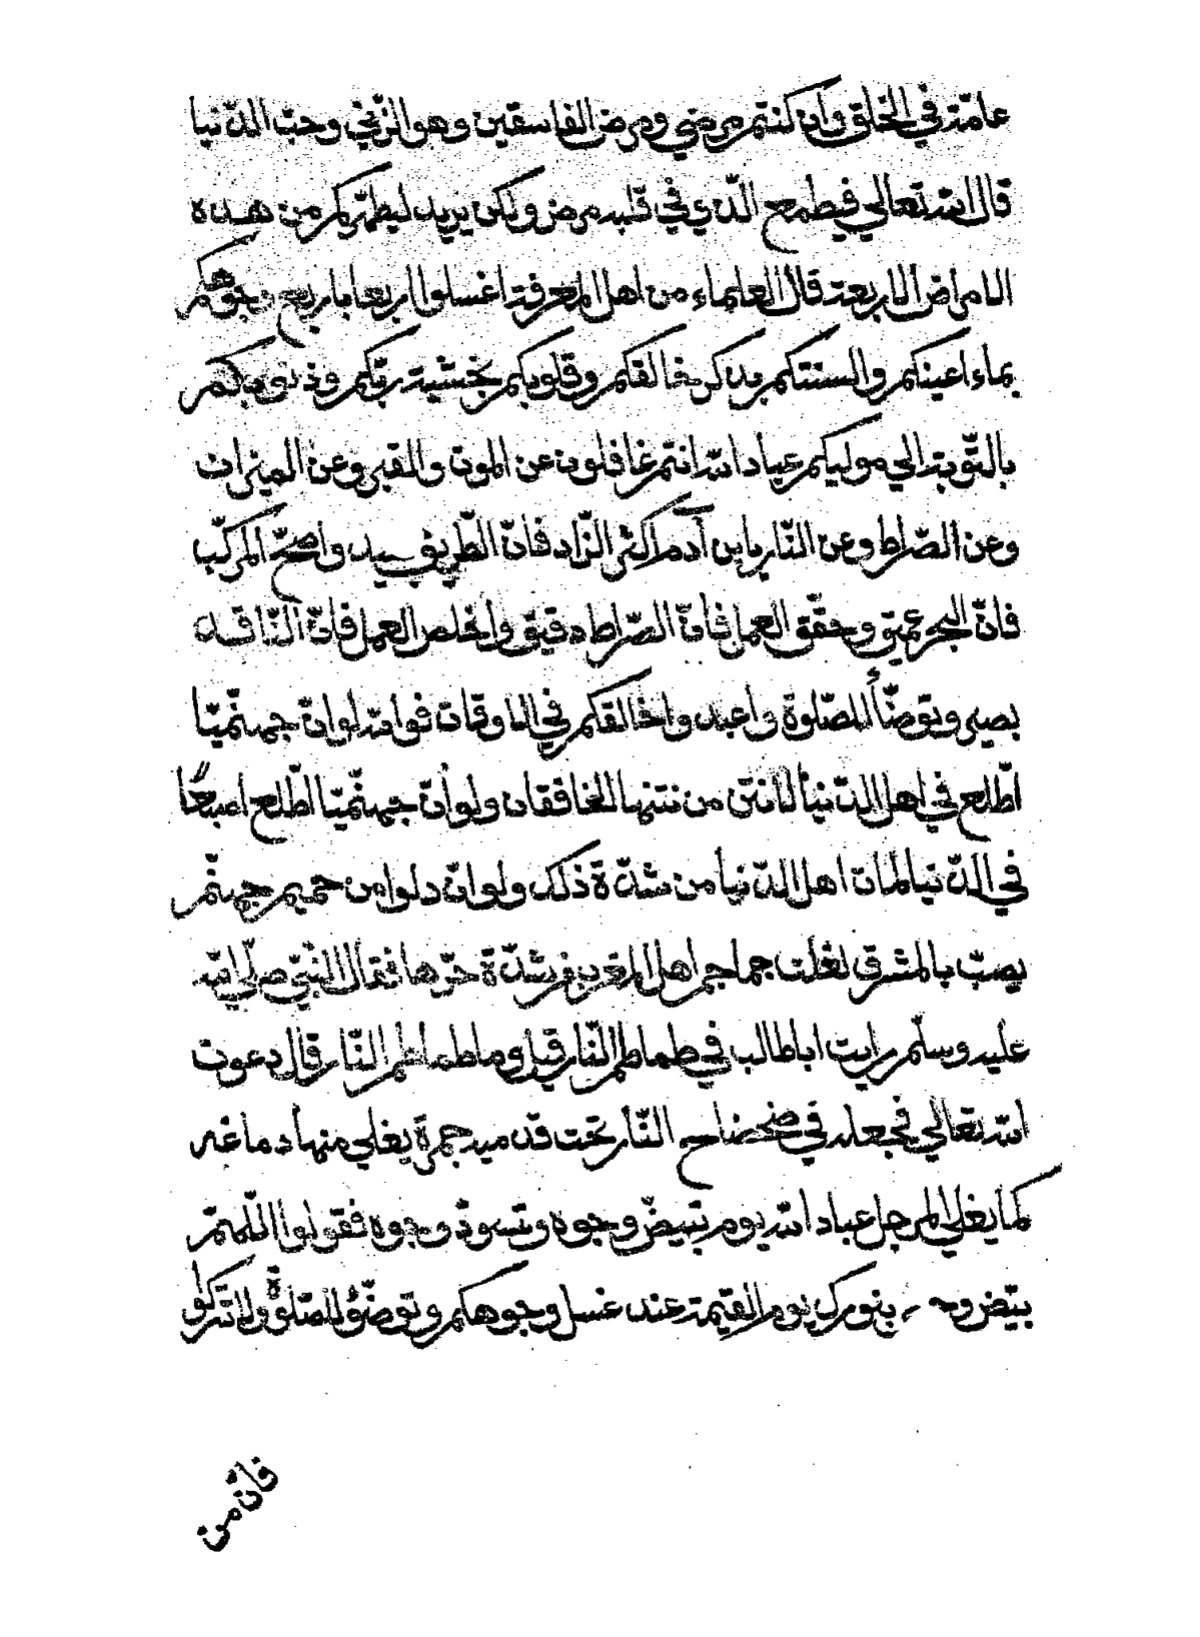 عامّة في الخلق وان كنتم مرضي ومرض الفاسقين وهو الزّني وحبّ الدّنيا
قال الله تعالي فيطمع الّذي في قلبه مرض ولكن يريد ليطهّركم من هذه
الامراض الاربعة قال العلماء من اهل المعرفة اغسلوا اربعا باربع وجوهكم
بماء اعينكم والسنتكم بذكر خالقكم وقلوبكم بخشية ربّكم وذنوبكم
بالتّوبة الي موليكم عباد الله انتم غافلون عن الموت والقبر وعن الميزان
وعن الصّراط وعن النّار يابن آدم اكثر الزّاد فانّ الطّريق بعيد واصحّ المركّب
فانّ البحر عميق وحقّق العمل فانّ الصّراط دقيق واخلص العمل فانّ النّاقد
بصير وتوضّأ للصّلوة واعبدوا خالقكم في الاوقات فوالله لو انّ جهنّميّا
اطّلع في اهل الدّنيا لانتن من نتنها الخافقان ولو أنّ جهنّميّا اطّلع اصبعًا
في الدّنيا لمات اهل الدّنيا من شدّة ذلك ولو انّ دلوا من حميم جهنّم
يصبّ بالمشرق لغلت جماجم اهل المغرب من شدّة حرّها فقال النّبيّ صلّي الله
عليه وسلّم رايت اباطالب في طماطم النّار قيل وما طماطم النّار قال دعوت
الله تعالي فجعله في ضحضاح النّار تحت قدميه جمرة يغلي منها دماغه
كما يغلي المرجل عباد الله يوم تبيضّ وجوه وتسودّ وجوه فقولوا اللّهمّ
بيّض وجه بنورك يوم القيمة عند غسل وجوهكم وتوضّؤ للصّلوة ولا تتركوا
فانّ من